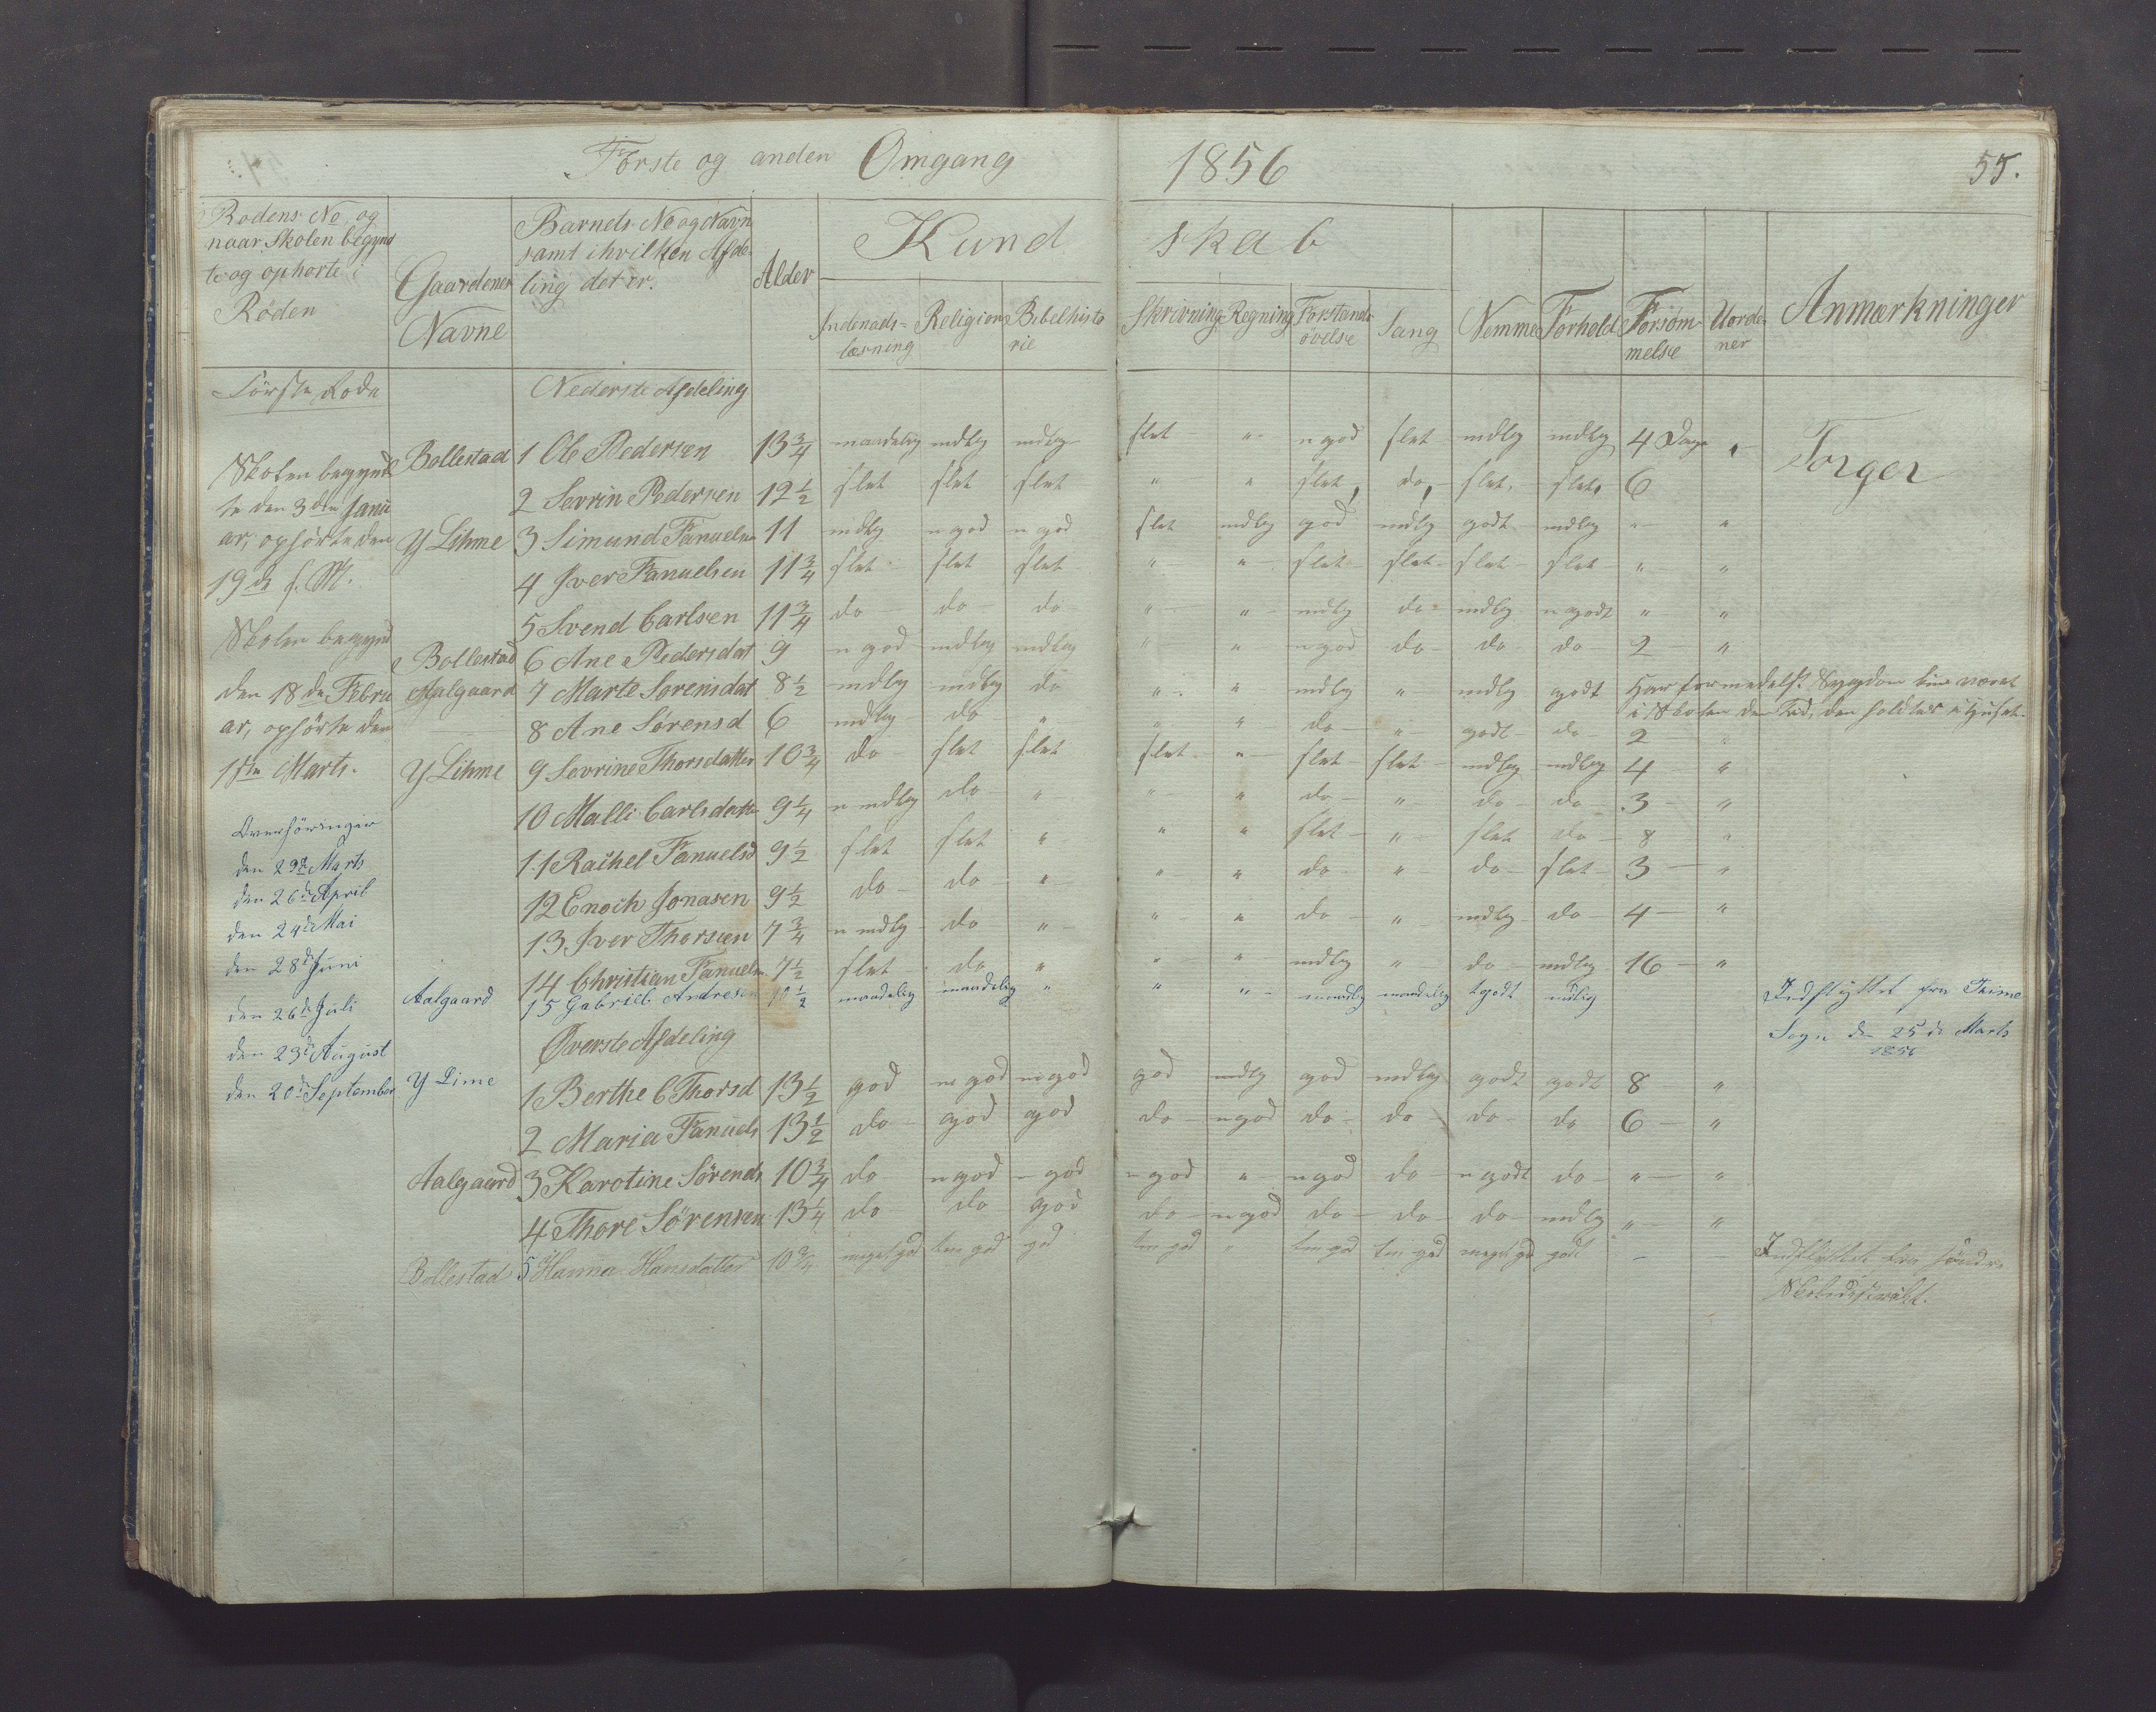 Første og anden Omgang 1856 55.
Rodens No og naar Skolen begynd te og ophorte i Roden
Gaardenes Navne
Barnets No og Navn samt i hvilken Afde ling det er.
Alder
Kund skab
Indenads= læsning Religion Bibelhisto rie Skrivning Regning Forstands øvelse Sang Nemme Forhold Forsøm melse Uorde ner Anmærkninger
Første Rode Nederste Afdeling
Bollestad 1 Ole Pedersen 13 3/4 maadelig mdlg mdlg slet " n god slet mdlg mdlg 4 Dage " Torger
Skolen begynd
2 Sevrin Pedersen 12 1/2 slet slet slet " " slet do slet slet 6
te den 3die Janu
ar, ophørte den
Y Lihme 3 Simund Fanuelsen 11 mdlg n god n god slet mdlg god mdlg godt mdlg " "
19de s. M.
4 Iver Fanuelsen 11 3/4 slet slet slet " " slet slet slet slet " "
5 Svend Carlsen 11 3/4 do do do " " mdlg do mdlg n godt " "
Skolen begynd
Bollestad 6 Ane Pedersdat 9 n god mdlg mdlg " " n god do do do 2 "
den 18de Febru
Aalgaard 7 Marte Sørensdat 8 1/2 mdlg mdlg do " " mdlg " mdlg godt Har formedelst Sygdom kun været
i Skolen den Tid, den holdtes i Huset.
ar, ophørte den
8 Ane Sørensd 6 mdlg do " " " do " godt do 2 "
1ste Marts.
Y Lihme 9 Sevrine Thorsdatter 10 3/4 do slet slet slet " slet slet mdlg mdlg 4 "
10 Malli Carlsdatter 9 1/4 n mdlg do " " " do " do do 3 "
Overhøringer
11 Rachel Fanuelsd 9 1/2 slet slet " " " slet " slet do 8 "
den 29de Marts
den 26de April
12 Enoch Jonasen 9 1/2 do do " " " do " do slet 3 "
den 24de Mai
13 Iver Thorsen 7 3/4 n mdlg do " " " do " mdlg do 4 "
den 28de Juni
14 Christian Fanuelsn 7 1/2 slet do " " " mdlg " do mdlg 16 "
den 26de Juli
Aalgaard 15 Gabriel Andresen 10 1/2 maadelig maadelig " " " maadlig maadelig tgodt mdlig Indflyttet fra Thime
Sogn d. 25de Marts
1856
den 23de August
Øverste Afdeling
den 20de September
Y Lime 1 Berthe C Thorsd 13 1/2 god n god n god god mdlg god mdlg godt godt 8 "
2 Maria Fanuels 13 1/2 do god god do n god do do do do 6 "
Aalgaard 3 Karotine Sörends 10 3/4 do n god n god n god " n god do n godt do " "
4 Thore Sörensen 13 1/4 do do god do n god do do do mdlg " "
Bollestad 5 Hanna Hansdatter 10 3/4 meget god tem god god tem god " tem god tem god meget god godt " Indflyttet fra søndre
Skoledistrikt.